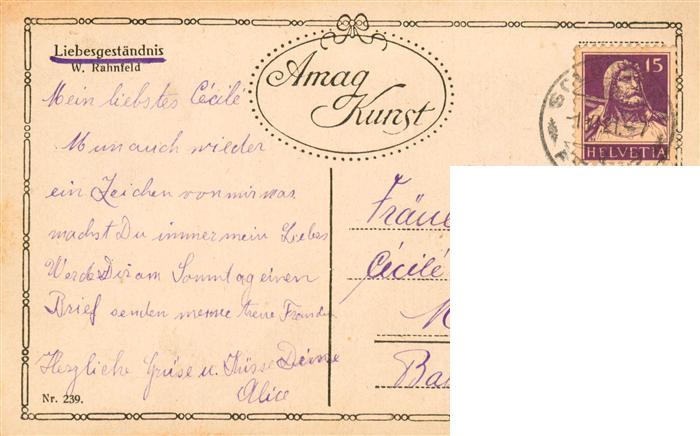 Liebesgeständnis
W. Rahnfeld
Amag
Kunst
15
HELVETIA
Mein liebstes Cécile
Nun auch wieder
ein Zeichen von mir was
machst Du immer mein Liebes
Werde Dir am Sonntag einen
Brief senden meine treue Freundin
Herzliche Grüse u. Küsse Deine
Alice
Nr. 239.
Fräu
Cécilé
M
Ba